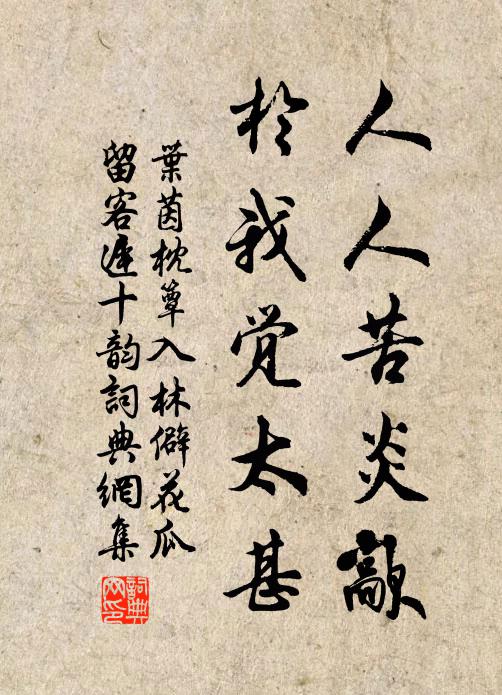 人人苦炎歊
於我觉太甚
葉茵枕簟入林僻花瓜
留客遲十韵詞典網集
詞典
网印